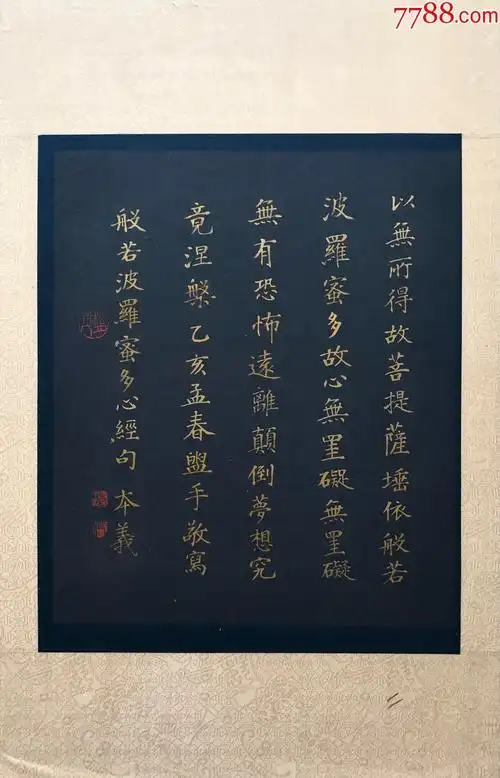 7788.com
以無所得故菩提薩埵依般若
波羅蜜多故心無罣礙無罣礙
無有恐怖遠離顛倒夢想究
竟涅槃乙亥孟春盥手敬寫
般若波羅蜜多心經句 本義